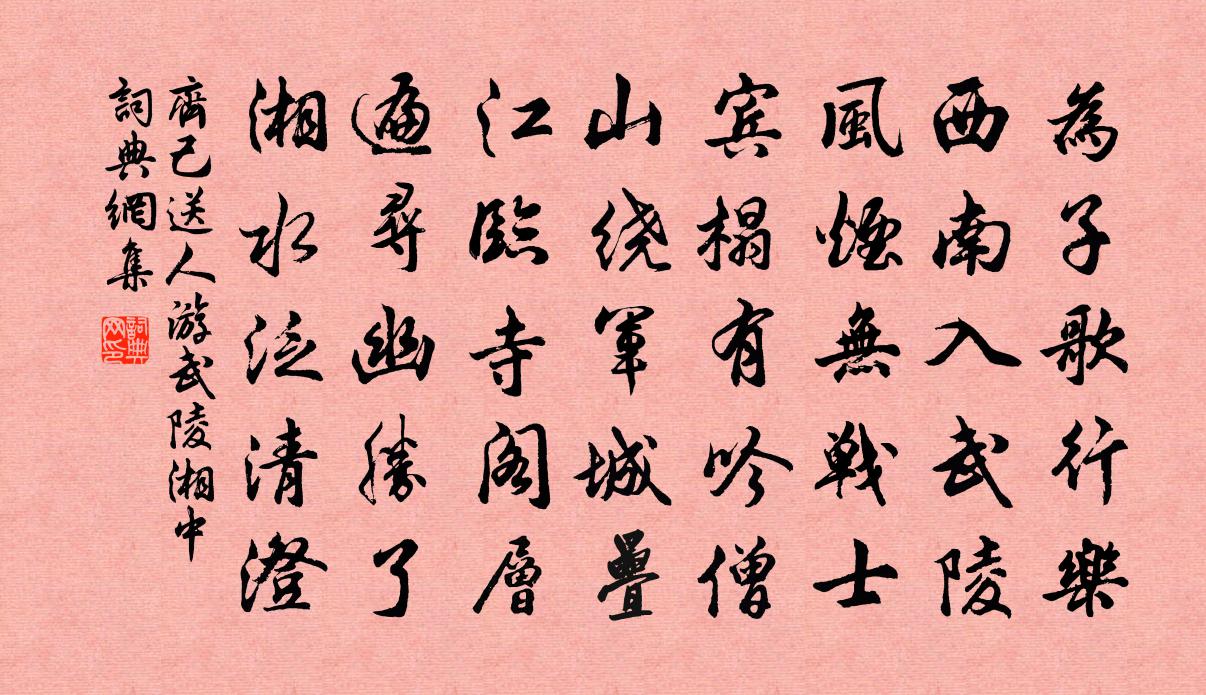 為子歌行樂
西南入武陵
風煙無戰士
宾榻有吟僧
山绕軍城疊
江臨寺阁層
遍尋幽勝了
湘水泛清澄
齊己送人游武陵湘中
詞典網集
詞典網印